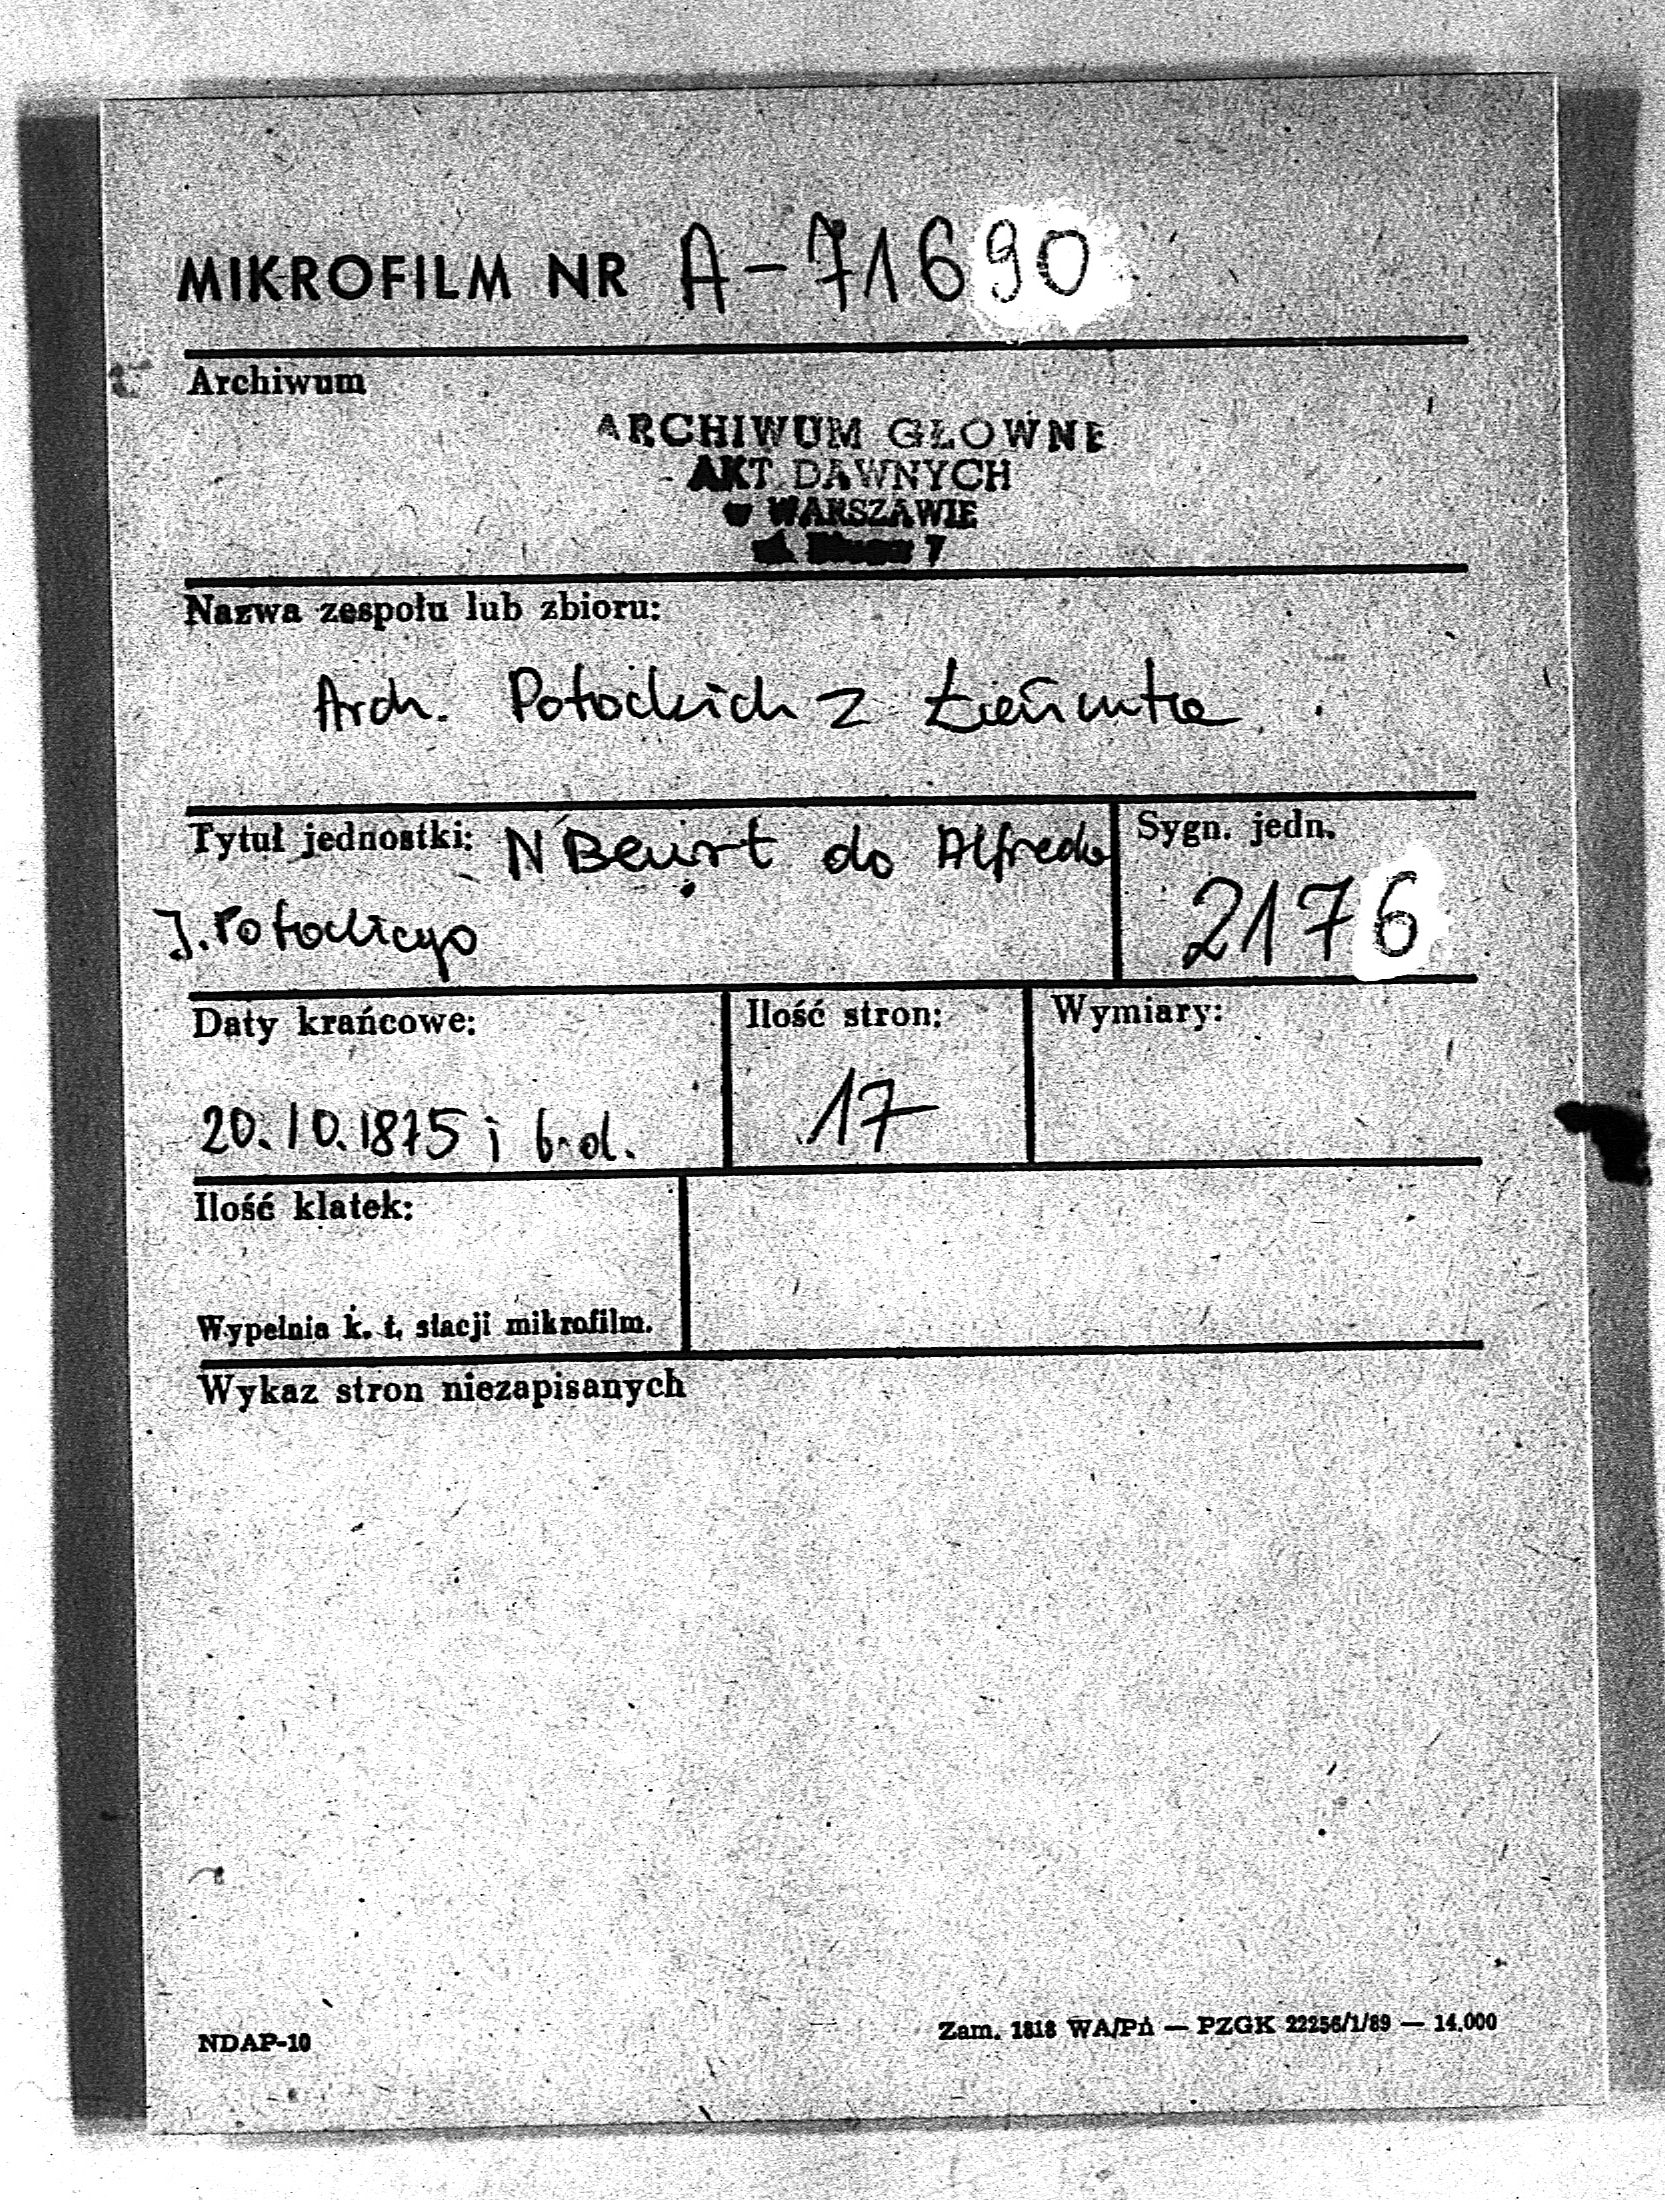 MIKROFILM NR A-71690
Archiwum
ARCHIWUM GŁOWNE
AKT DAWNYCH
w WARSZAWIE
7
Nazwa zespołu lub zbioru:
Arch. Potockich z Łańcuta
Tytuł jednostki: N do Alfreda
J. Potockiego
Sygn. jedn.
2176
Daty krańcowe:
20.10.1875 i b.d.
Ilość stron:
17
Wymiary:
Ilość klatek:
Wypełnia k. t. stacji mikrofilm.
Wykaz stron niezapisanych
NDAP-10
Zam. 1818 WA/Pń — PZGK 22256/1/89 — 14.000